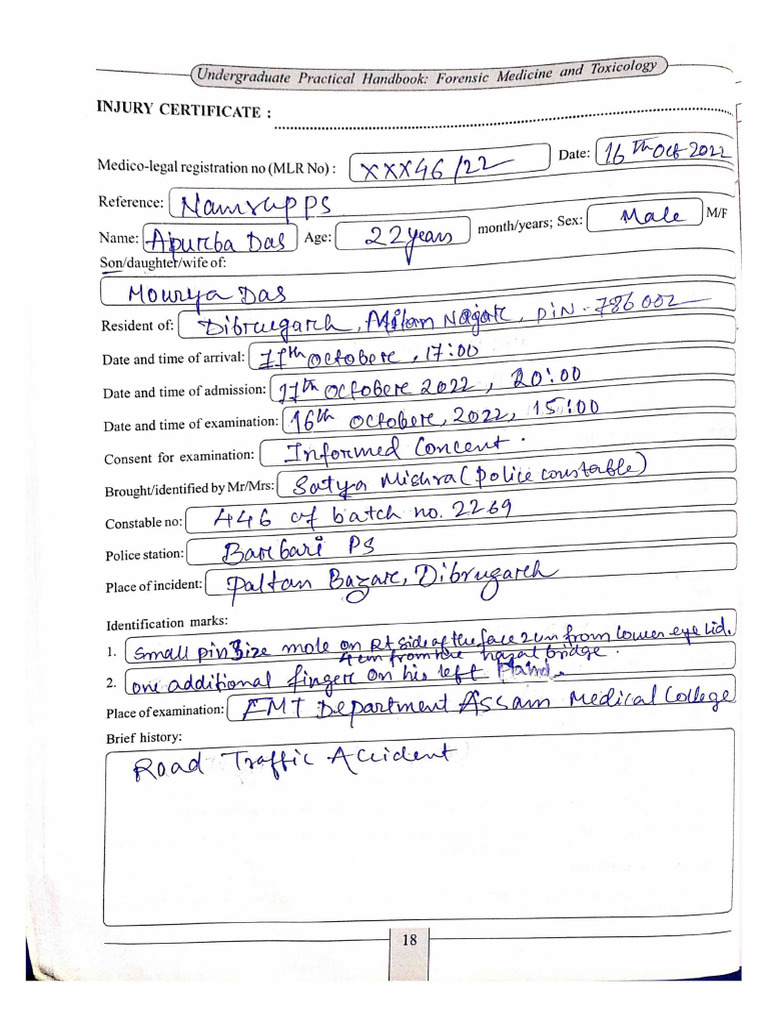 Undergraduate Practical Handbook: Forensic Medicine and Toxicology
INJURY CERTIFICATE :
Medico-legal registration no (MLR No) : XXX46/22 Date: 16th Oct 2022
Reference: Namrup PS
Name: Apurba Das Age: 22 years month/years; Sex: Male M/F
Son/daughter/wife of:
Mourya Das
Resident of: Dibrugarh, Milan Nagar, PIN - 786002
Date and time of arrival: 17th October, 17:00
Date and time of admission: 17th October 2022, 20:00
Date and time of examination: 16th October, 2022, 15:00
Consent for examination: Informed Concent.
Brought/identified by Mr/Mrs: Satya Mishra (police constable)
Constable no: 446 of batch no. 2269
Police station: Barbari PS
Place of incident: Paltan Bazar, Dibrugarh
Identification marks:
1. Small pin size mole on Rt side of the face 2cm from lower eye lid.
4cm from the nazal bridge.
2. one additional finger on his left Hand.
Place of examination: FMT Department Assam Medical College
Brief history:
Road Traffic Accident
18